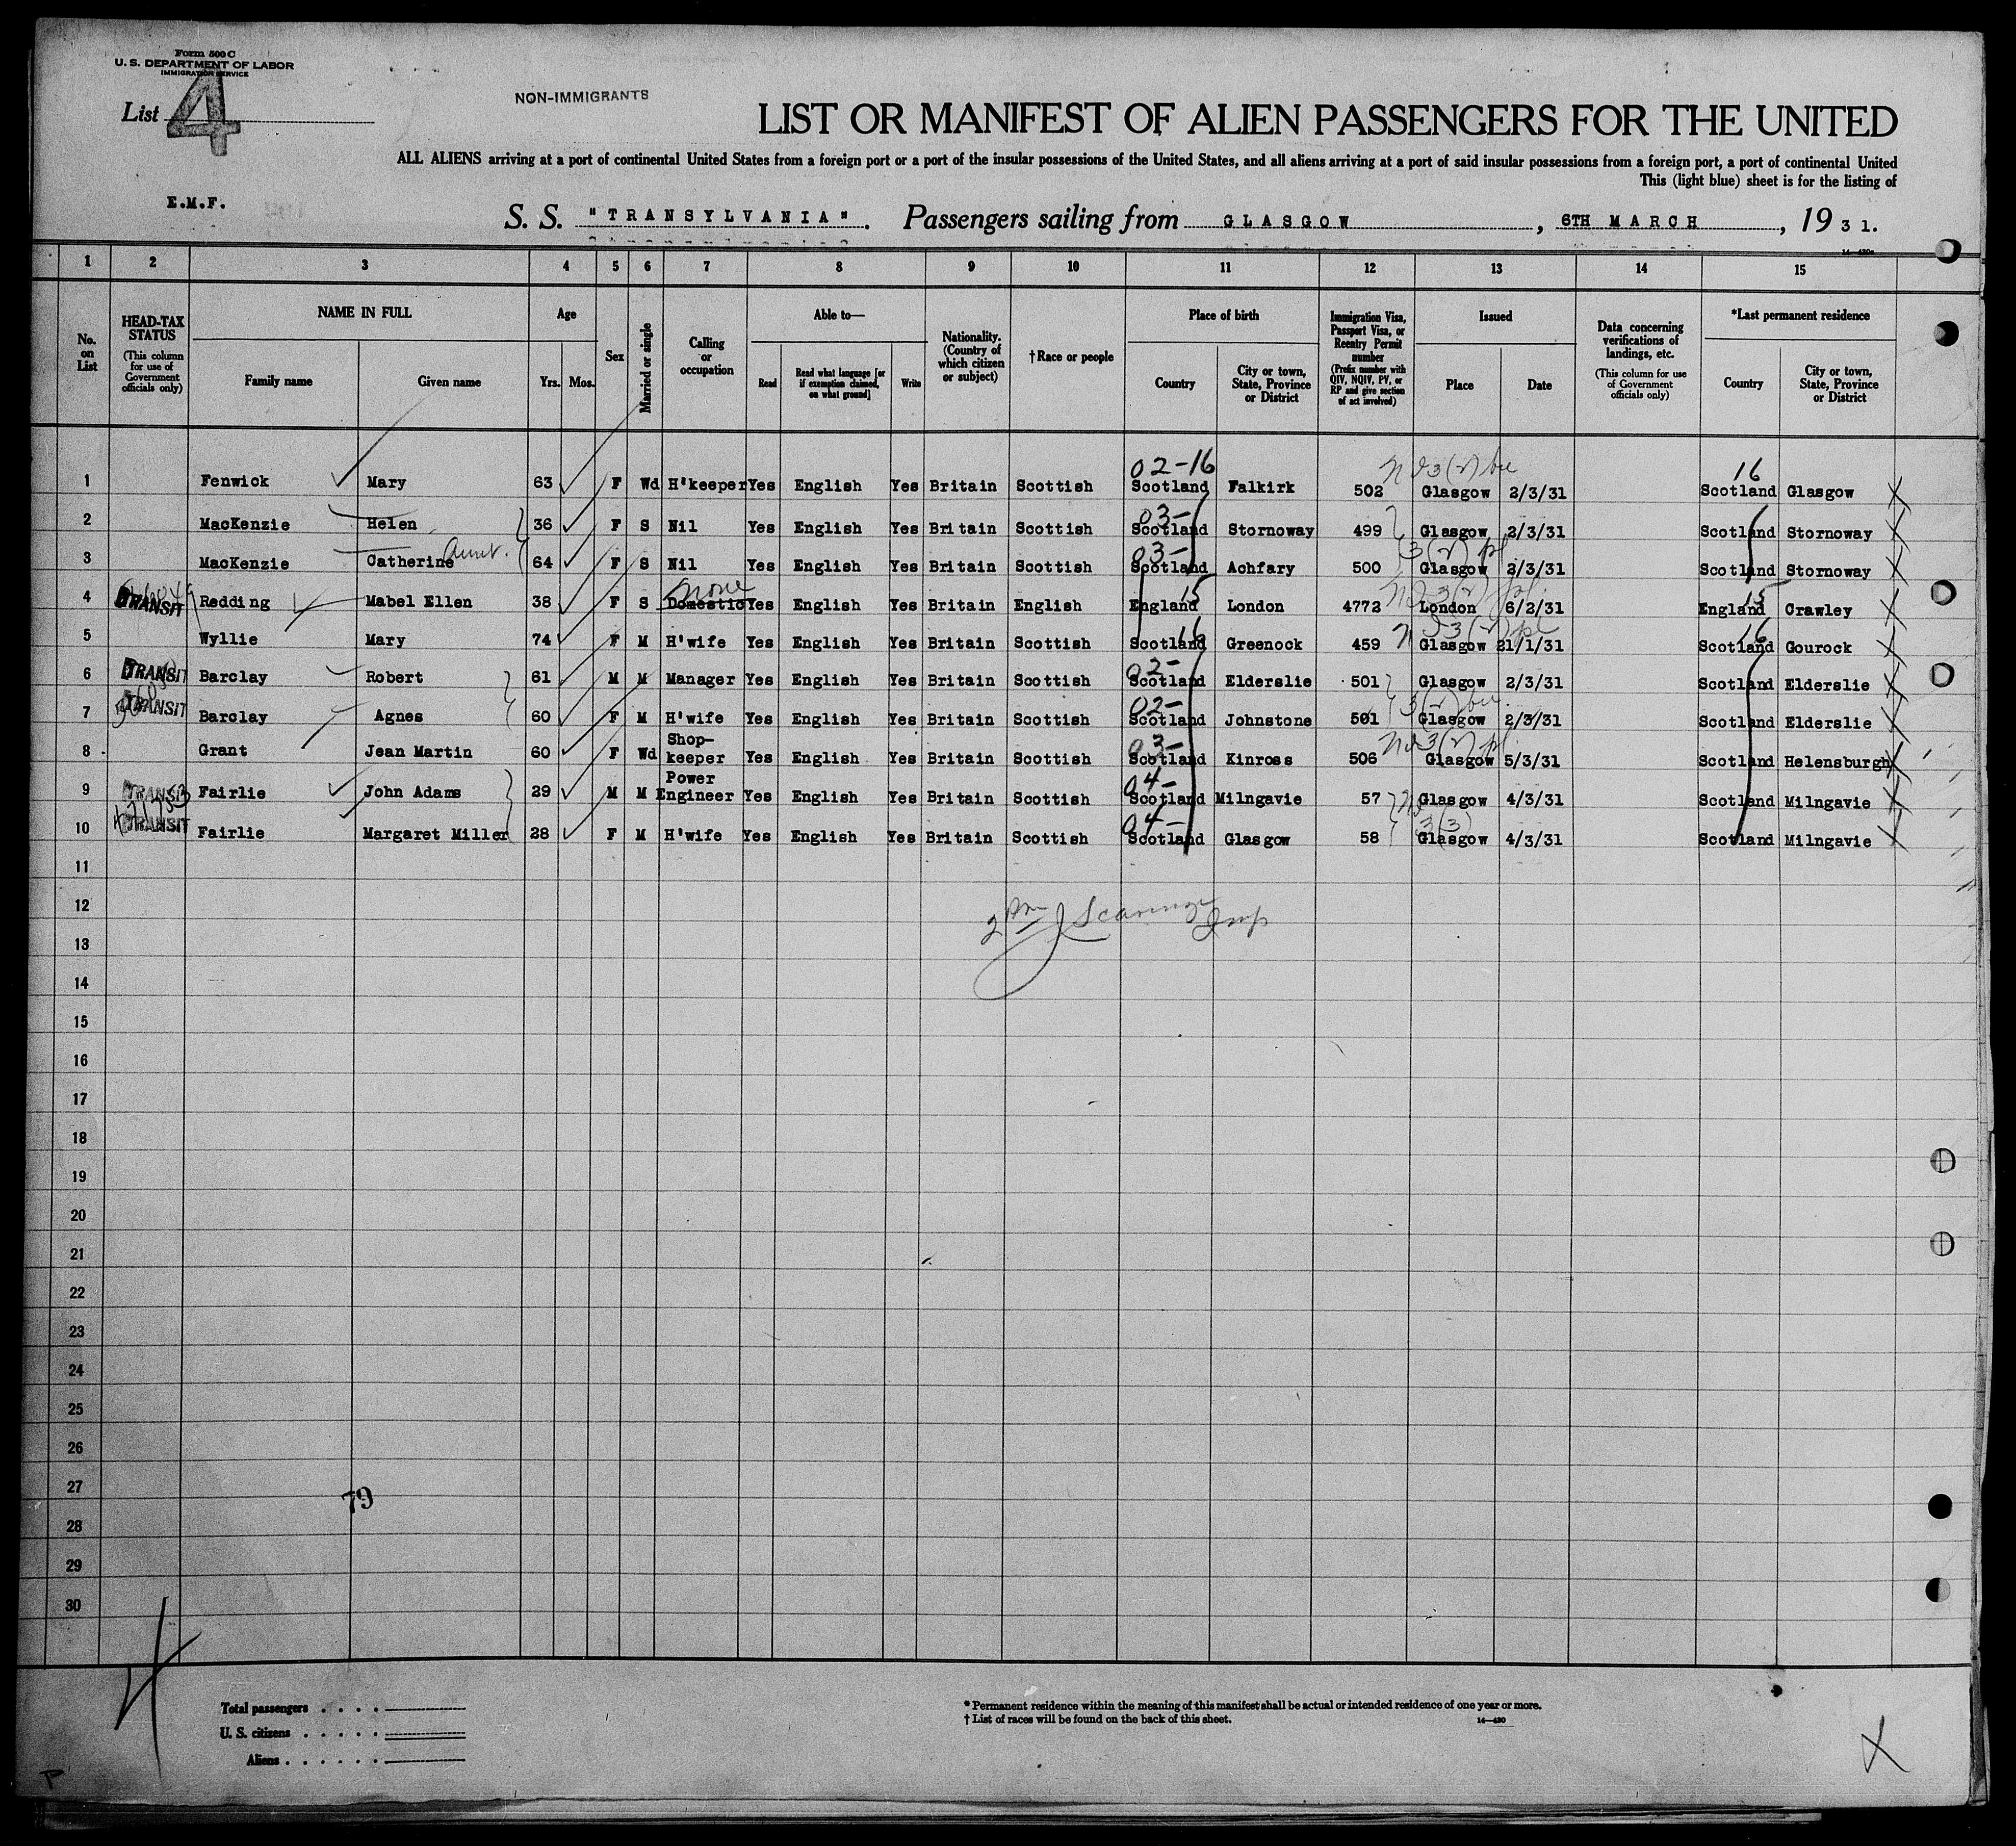 Form 500 C
U. S. DEPARTMENT OF LABOR
IMMIGRATION SERVICE
List 4
NON-IMMIGRANTS
LIST OR MANIFEST OF ALIEN PASSENGERS FOR THE UNITED
ALL ALIENS arriving at a port of continental United States from a foreign port or a port of the insular possessions of the United States, and all aliens arriving at a port of said insular possessions from a foreign port, a port of continental United
This (light blue) sheet is for the listing of
E.M.F.
S. S. "TRANSYLVANIA". Passengers sailing from GLASGOW, 6TH MARCH, 1931.
1 2 3 4 5 6 7 8 9 10 11 12 13 14 15
No. on List
HEAD-TAX STATUS
(This column for use of Government officials only)
NAME IN FULL
Family name Given name
Age
Yrs. Mos.
Sex
Married or single
Calling or occupation
Able to—
Read Read what language [or if exemption claimed, on what ground] Write
Nationality. (Country of which citizen or subject)
†Race or people
Place of birth
Country City or town, State, Province or District
Immigration Visa, Passport Visa, or Reentry Permit number
(Prefix number with QIV, NQIV, PV, or RP and give section of act involved)
Issued
Place Date
Data concerning verifications of landings, etc.
(This column for use of Government officials only)
*Last permanent residence
Country City or town, State, Province or District
02-16 16
1 Fenwick Mary 63 F Wd H'keeper Yes English Yes Britain Scottish Scotland Falkirk 502 Glasgow 2/3/31 Scotland Glasgow X
03-
2 MacKenzie Helen 36 F S Nil Yes English Yes Britain Scottish Scotland Stornoway 499 Glasgow 2/3/31 Scotland Stornoway X
Aunt. 03- 3(2) pl
3 MacKenzie Catherine 64 F S Nil Yes English Yes Britain Scottish Scotland Achfary 500 Glasgow 2/3/31 Scotland Stornoway X
none 15 15
4 TRANSIT Redding Mabel Ellen 38 F S Domestic Yes English Yes Britain English England London 4772 London 6/2/31 England Crawley X
16 16
5 Wyllie Mary 74 F M H'wife Yes English Yes Britain Scottish Scotland Greenock 459 Glasgow 21/1/31 Scotland Gourock X
02-
6 TRANSIT Barclay Robert 61 M M Manager Yes English Yes Britain Scottish Scotland Elderslie 501 Glasgow 2/3/31 Scotland Elderslie X
02-
7 TRANSIT Barclay Agnes 60 F M H'wife Yes English Yes Britain Scottish Scotland Johnstone 501 Glasgow 2/3/31 Scotland Elderslie X
03-
8 Grant Jean Martin 60 F Wd Shop-keeper Yes English Yes Britain Scottish Scotland Kinross 506 Glasgow 5/3/31 Scotland Helensburgh X
04-
9 TRANSIT Fairlie John Adams 29 M M Power Engineer Yes English Yes Britain Scottish Scotland Milngavie 57 Glasgow 4/3/31 Scotland Milngavie X
04- 3(3)
10 TRANSIT Fairlie Margaret Miller 28 F M H'wife Yes English Yes Britain Scottish Scotland Glasgow 58 Glasgow 4/3/31 Scotland Milngavie X
11
12
13
14
15
16
17
18
19
20
21
22
23
24
25
26
27
79
28
29
30
4
Total passengers
U. S. citizens
Aliens
* Permanent residence within the meaning of this manifest shall be actual or intended residence of one year or more.
† List of races will be found on the back of this sheet.
14—430
X
P